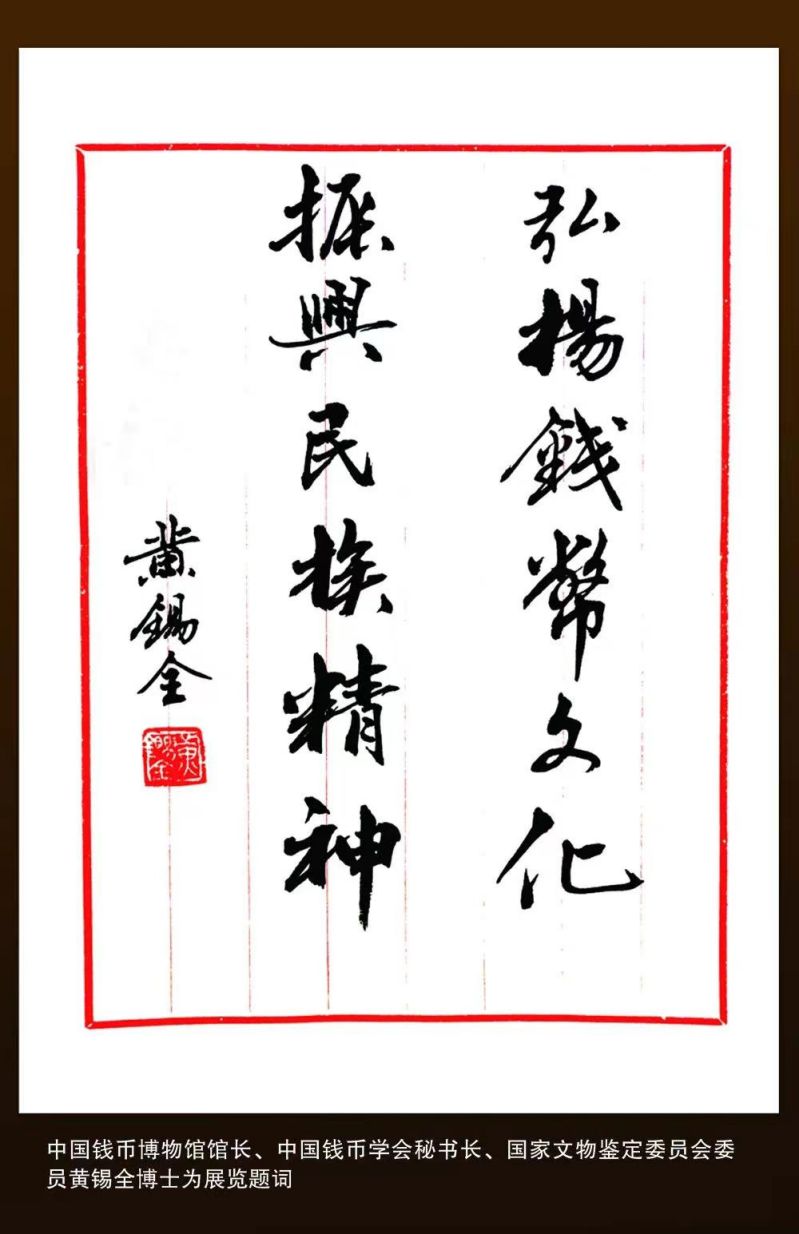 弘揚錢幣文化
振興民族精神
黄錫全
黄錫全
中国钱币博物馆馆长、中国钱币学会秘书长、国家文物鉴定委员会委
员黄锡全博士为展览题词